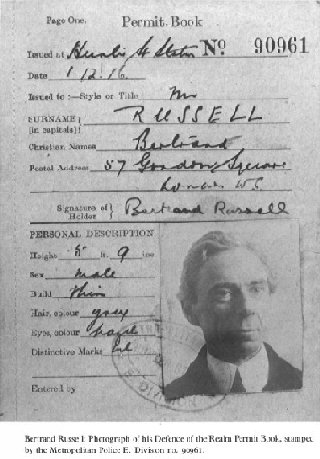 Page One. Permit Book
Issued at Hunter St Station Nº 90961
Date 1.12.16
Issued to :—Style or Title Mr
SURNAME RUSSELL
(in capitals)
Christian Names Bertrand
Postal Address 57 Gordon Square
London WC
Signature of Holder Bertrand Russell
PERSONAL DESCRIPTION
Height 5 ft. 9 ins
Sex male
Build thin
Hair, colour grey
Eyes, colour hazel
Distinctive Marks nil
Entered by
Bertrand Russell: Photograph of his Defence of the Realm Permit Book, stamped
by the Metropolitan Police E. Divison no. 90961.